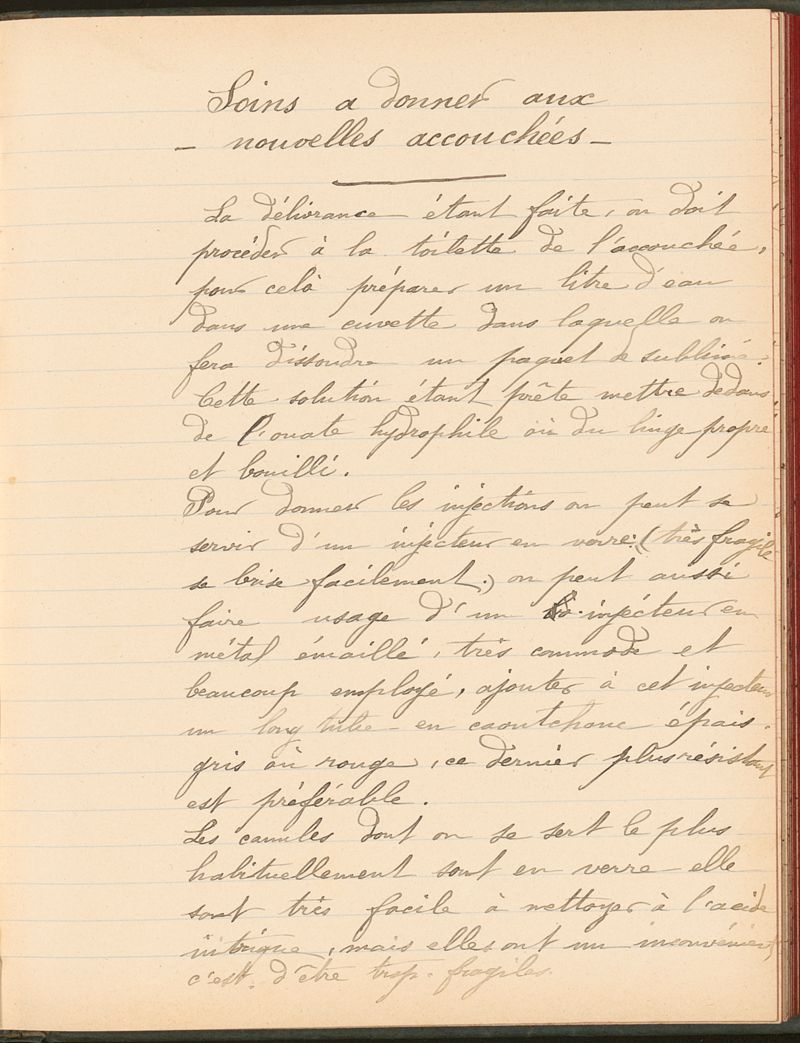 Soins a donner aux
- nouvelles accouchées -
La délivrance étant faite, on doit
procéder à la toilette de l'accouchée,
pour celà préparer un litre d'eau
dans une cuvette dans laquelle on
fera dissoudre un paquet de sublimé.
Cette solution étant prête mettre dedans,
de l'ouate hydrophile où du linge propre
et bouilli.
Pour donner les injections on peut se
servir d'un injecteur en verre: (très fragile
se brise facilement,) on peut aussi
faire usage d'un injécteur en
métal émaillé, très commode et
beaucoup employé, ajouter à cet injecteur
un long tube en caoutchouc épais,
gris où rouge, ce dernier plus résistant
est préférable.
Les canules dont on se sert le plus
habituellement sont en verre elle
sont très facile à nettoyer à l'acide
nitrique, mais elles ont un inconvénient
c'est d'être trop fragiles.